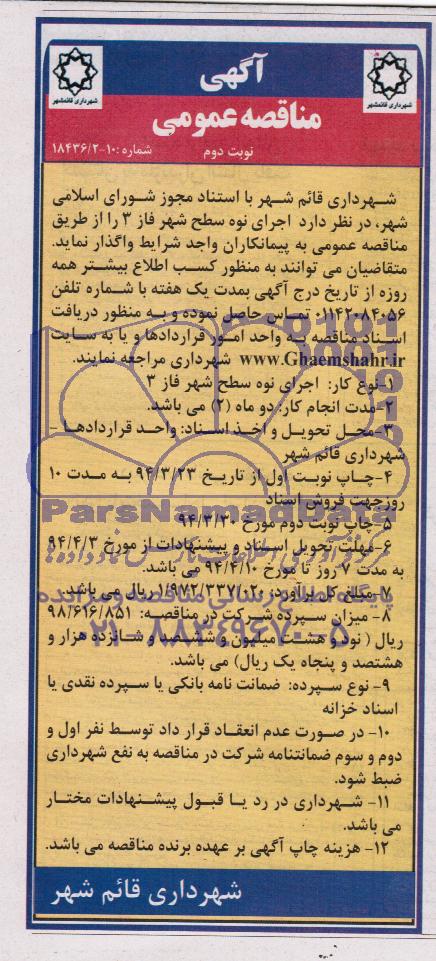 آگهی
مناقصه عمومی
نوبت دوم
شماره: ۱۸۴۳۶/۲-۱۰
شهرداری قائمشهر
شهرداری قائمشهر
شهرداری قائم شهر با استناد مجوز شورای اسلامی
شهر، در نظر دارد اجرای نوه سطح شهر فاز ۳ را از طریق
مناقصه عمومی به پیمانکاران واجد شرایط واگذار نماید.
متقاضیان می توانند به منظور کسب اطلاع بیشتر همه
روزه از تاریخ درج آگهی بمدت یک هفته با شماره تلفن
۰۱۱۴۲۰۸۴۰۵۶ تماس حاصل نموده و به منظور دریافت
اسناد مناقصه به واحد امور قراردادها و یا به سایت
www.Ghaemshahr.ir شهرداری مراجعه نمایند.
۱-نوع کار: اجرای نوه سطح شهر فاز ۳
۲-مدت انجام کار: دو ماه (۲) می باشد.
۳-محل تحویل و اخذ اسناد: واحد قراردادها –
شهرداری قائم شهر
۴-چاپ نوبت اول از تاریخ ۹۴/۳/۲۳ به مدت ۱۰
روزجهت فروش اسناد
۵-چاپ نوبت دوم مورخ ۹۴/۳/۳۰
۶-مهلت تحویل اسناد و پیشنهادات از مورخ ۹۴/۴/۳
به مدت ۷ روز تا مورخ ۹۴/۴/۱۰ می باشد.
۷-مبلغ کل برآورد: ۱/۹۷۲/۳۳۷/۰۲۰ ریال می باشد.
۸- میزان سپرده شرکت در مناقصه: ۹۸/۶۱۶/۸۵۱
ریال ( نود و هشت میلیون و ششصد و شانزده هزار و
هشتصد و پنجاه یک ریال) می باشد.
۹- نوع سپرده: ضمانت نامه بانکی یا سپرده نقدی یا
اسناد خزانه
۱۰- در صورت عدم انعقاد قرار داد توسط نفر اول و
دوم و سوم ضمانتنامه شرکت در مناقصه به نفع شهرداری
ضبط شود.
۱۱- شهرداری در رد یا قبول پیشنهادات مختار
می باشد.
۱۲- هزینه چاپ آگهی بر عهده برنده مناقصه می باشد.
شهرداری قائم شهر
ParsNamadData